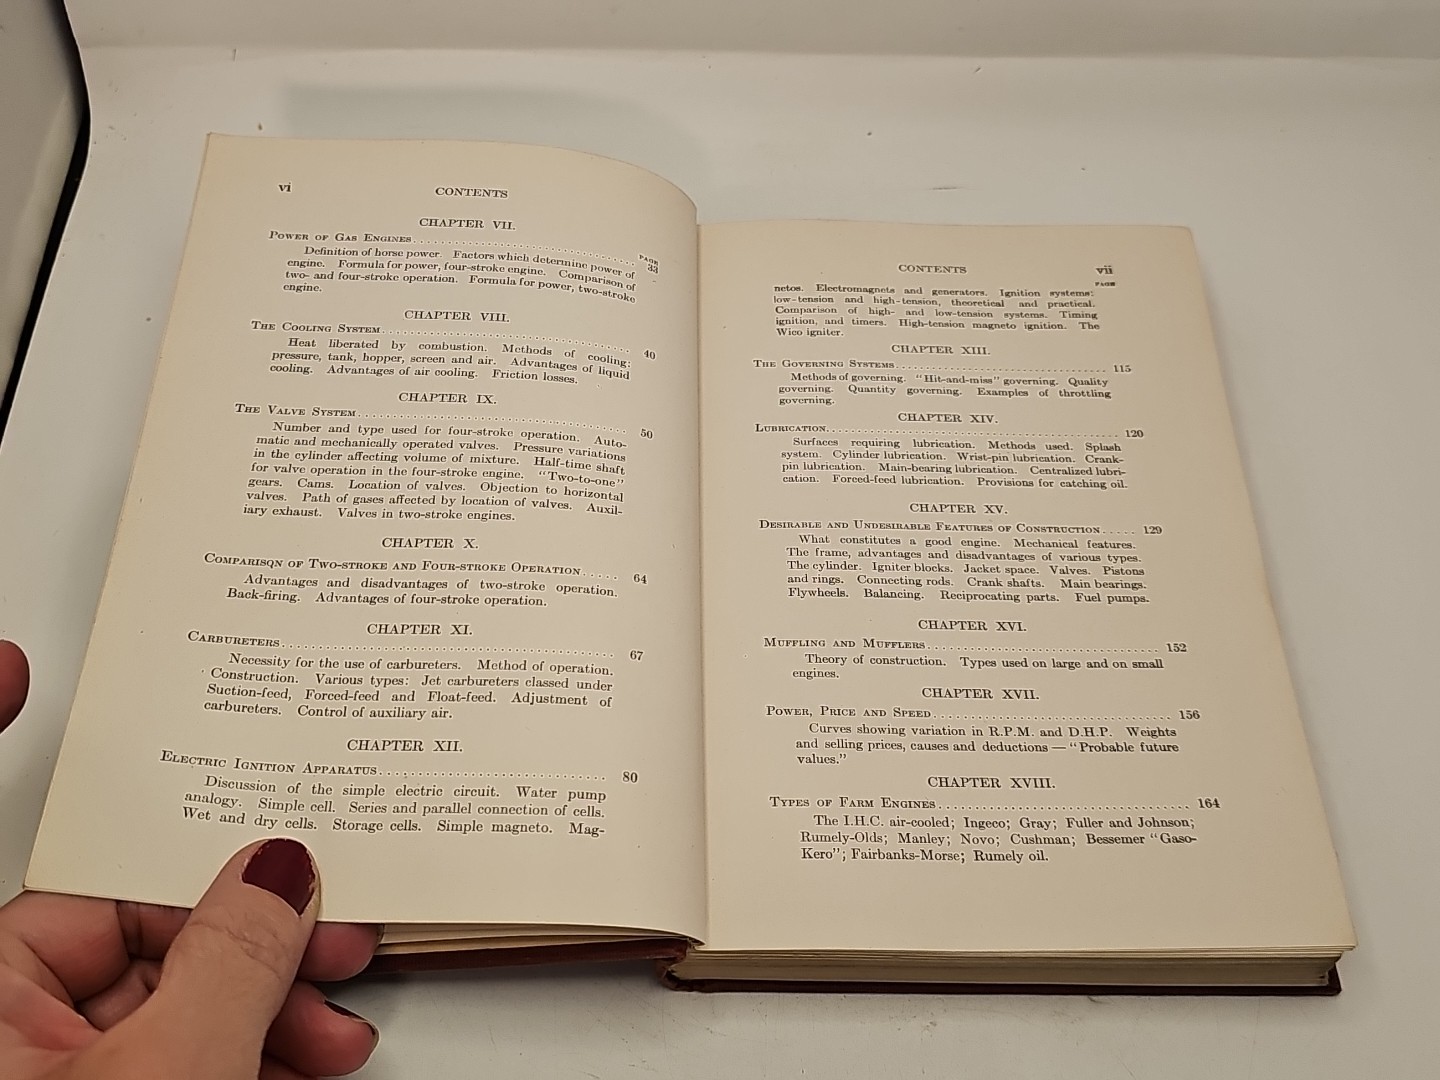 vi CONTENTS
CHAPTER VII.
PAGE
Power of Gas Engines........................................ 33
Definition of horse power. Factors which determine power of
engine. Formula for power, four-stroke engine. Comparison of
two- and four-stroke operation. Formula for power, two-stroke
engine.
CHAPTER VIII.
The Cooling System........................................ 40
Heat liberated by combustion. Methods of cooling:
pressure, tank, hopper, screen and air. Advantages of liquid
cooling. Advantages of air cooling. Friction losses.
CHAPTER IX.
The Valve System........................................ 50
Number and type used for four-stroke operation. Auto-
matic and mechanically operated valves. Pressure variations
in the cylinder affecting volume of mixture. Half-time shaft
for valve operation in the four-stroke engine. "Two-to-one"
gears. Cams. Location of valves. Objection to horizontal
valves. Path of gases affected by location of valves. Auxil-
iary exhaust. Valves in two-stroke engines.
CHAPTER X.
Comparison of Two-stroke and Four-stroke Operation..... 64
Advantages and disadvantages of two-stroke operation.
Back-firing. Advantages of four-stroke operation.
CHAPTER XI.
Carbureters........................................ 67
Necessity for the use of carbureters. Method of operation.
Construction. Various types: Jet carbureters classed under
Suction-feed, Forced-feed and Float-feed. Adjustment of
carbureters. Control of auxiliary air.
CHAPTER XII.
Electric Ignition Apparatus........................................ 80
Discussion of the simple electric circuit. Water pump
analogy. Simple cell. Series and parallel connection of cells.
Wet and dry cells. Storage cells. Simple magneto. Mag-
CONTENTS vii
PAGE
netos. Electromagnets and generators. Ignition systems:
low-tension and high-tension, theoretical and practical.
Comparison of high- and low-tension systems. Timing
ignition, and timers. High-tension magneto ignition. The
Wico igniter.
CHAPTER XIII.
The Governing Systems........................................ 115
Methods of governing. "Hit-and-miss" governing. Quality
governing. Quantity governing. Examples of throttling
governing.
CHAPTER XIV.
Lubrication........................................ 120
Surfaces requiring lubrication. Methods used. Splash
system. Cylinder lubrication. Wrist-pin lubrication. Crank-
pin lubrication. Main-bearing lubrication. Centralized lubri-
cation. Forced-feed lubrication. Provisions for catching oil.
CHAPTER XV.
Desirable and Undesirable Features of Construction...... 129
What constitutes a good engine. Mechanical features.
The frame, advantages and disadvantages of various types.
The cylinder. Igniter blocks. Jacket space. Valves. Pistons
and rings. Connecting rods. Crank shafts. Main bearings.
Flywheels. Balancing. Reciprocating parts. Fuel pumps.
CHAPTER XVI.
Muffling and Mufflers........................................ 152
Theory of construction. Types used on large and on small
engines.
CHAPTER XVII.
Power, Price and Speed........................................ 156
Curves showing variation in R.P.M. and D.H.P. Weights
and selling prices, causes and deductions — "Probable future
values."
CHAPTER XVIII.
Types of Farm Engines........................................ 164
The I.H.C. air-cooled; Ingeco; Gray; Fuller and Johnson;
Rumely-Olds; Manley; Novo; Cushman; Bessemer "Gaso-
Kero"; Fairbanks-Morse; Rumely oil.